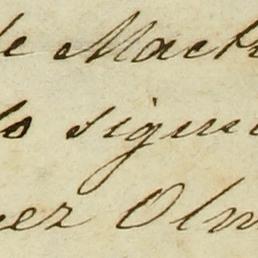 de Mach
lo sigui
ez Olm